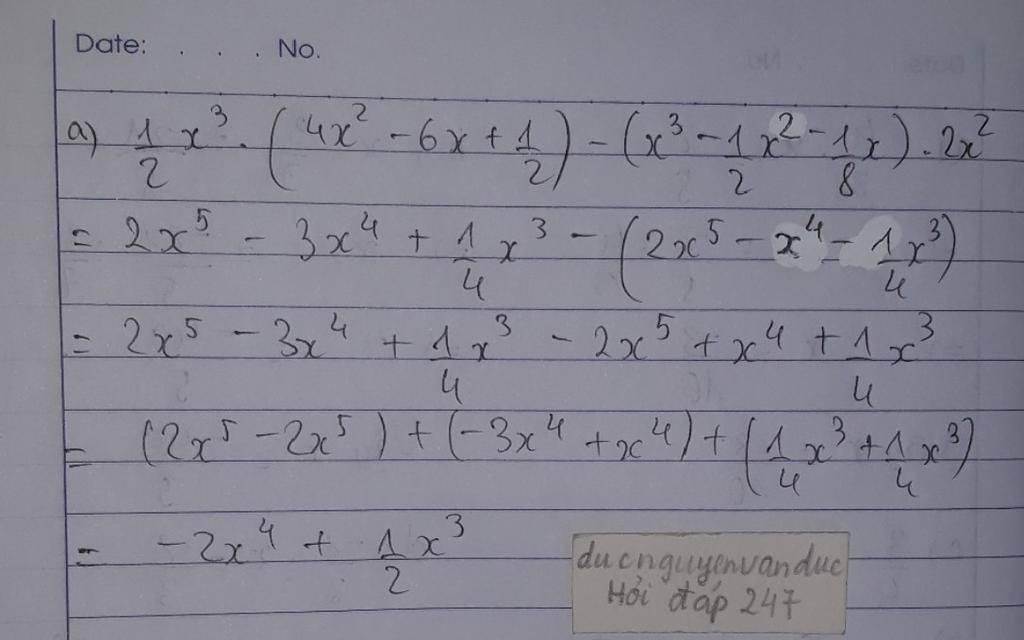 Date: . . . No.
a) 1/2 x³ . (4x² - 6x + 1/2) - (x³ - 1/2 x² - 1/8 x) . 2x²
= 2x⁵ - 3x⁴ + 1/4 x³ - (2x⁵ - x⁴ - 1/4 x³)
= 2x⁵ - 3x⁴ + 1/4 x³ - 2x⁵ + x⁴ + 1/4 x³
= (2x⁵ - 2x⁵) + (-3x⁴ + x⁴) + (1/4 x³ + 1/4 x³)
= -2x⁴ + 1/2 x³
ducnguyenvanduc
Hỏi đáp 247